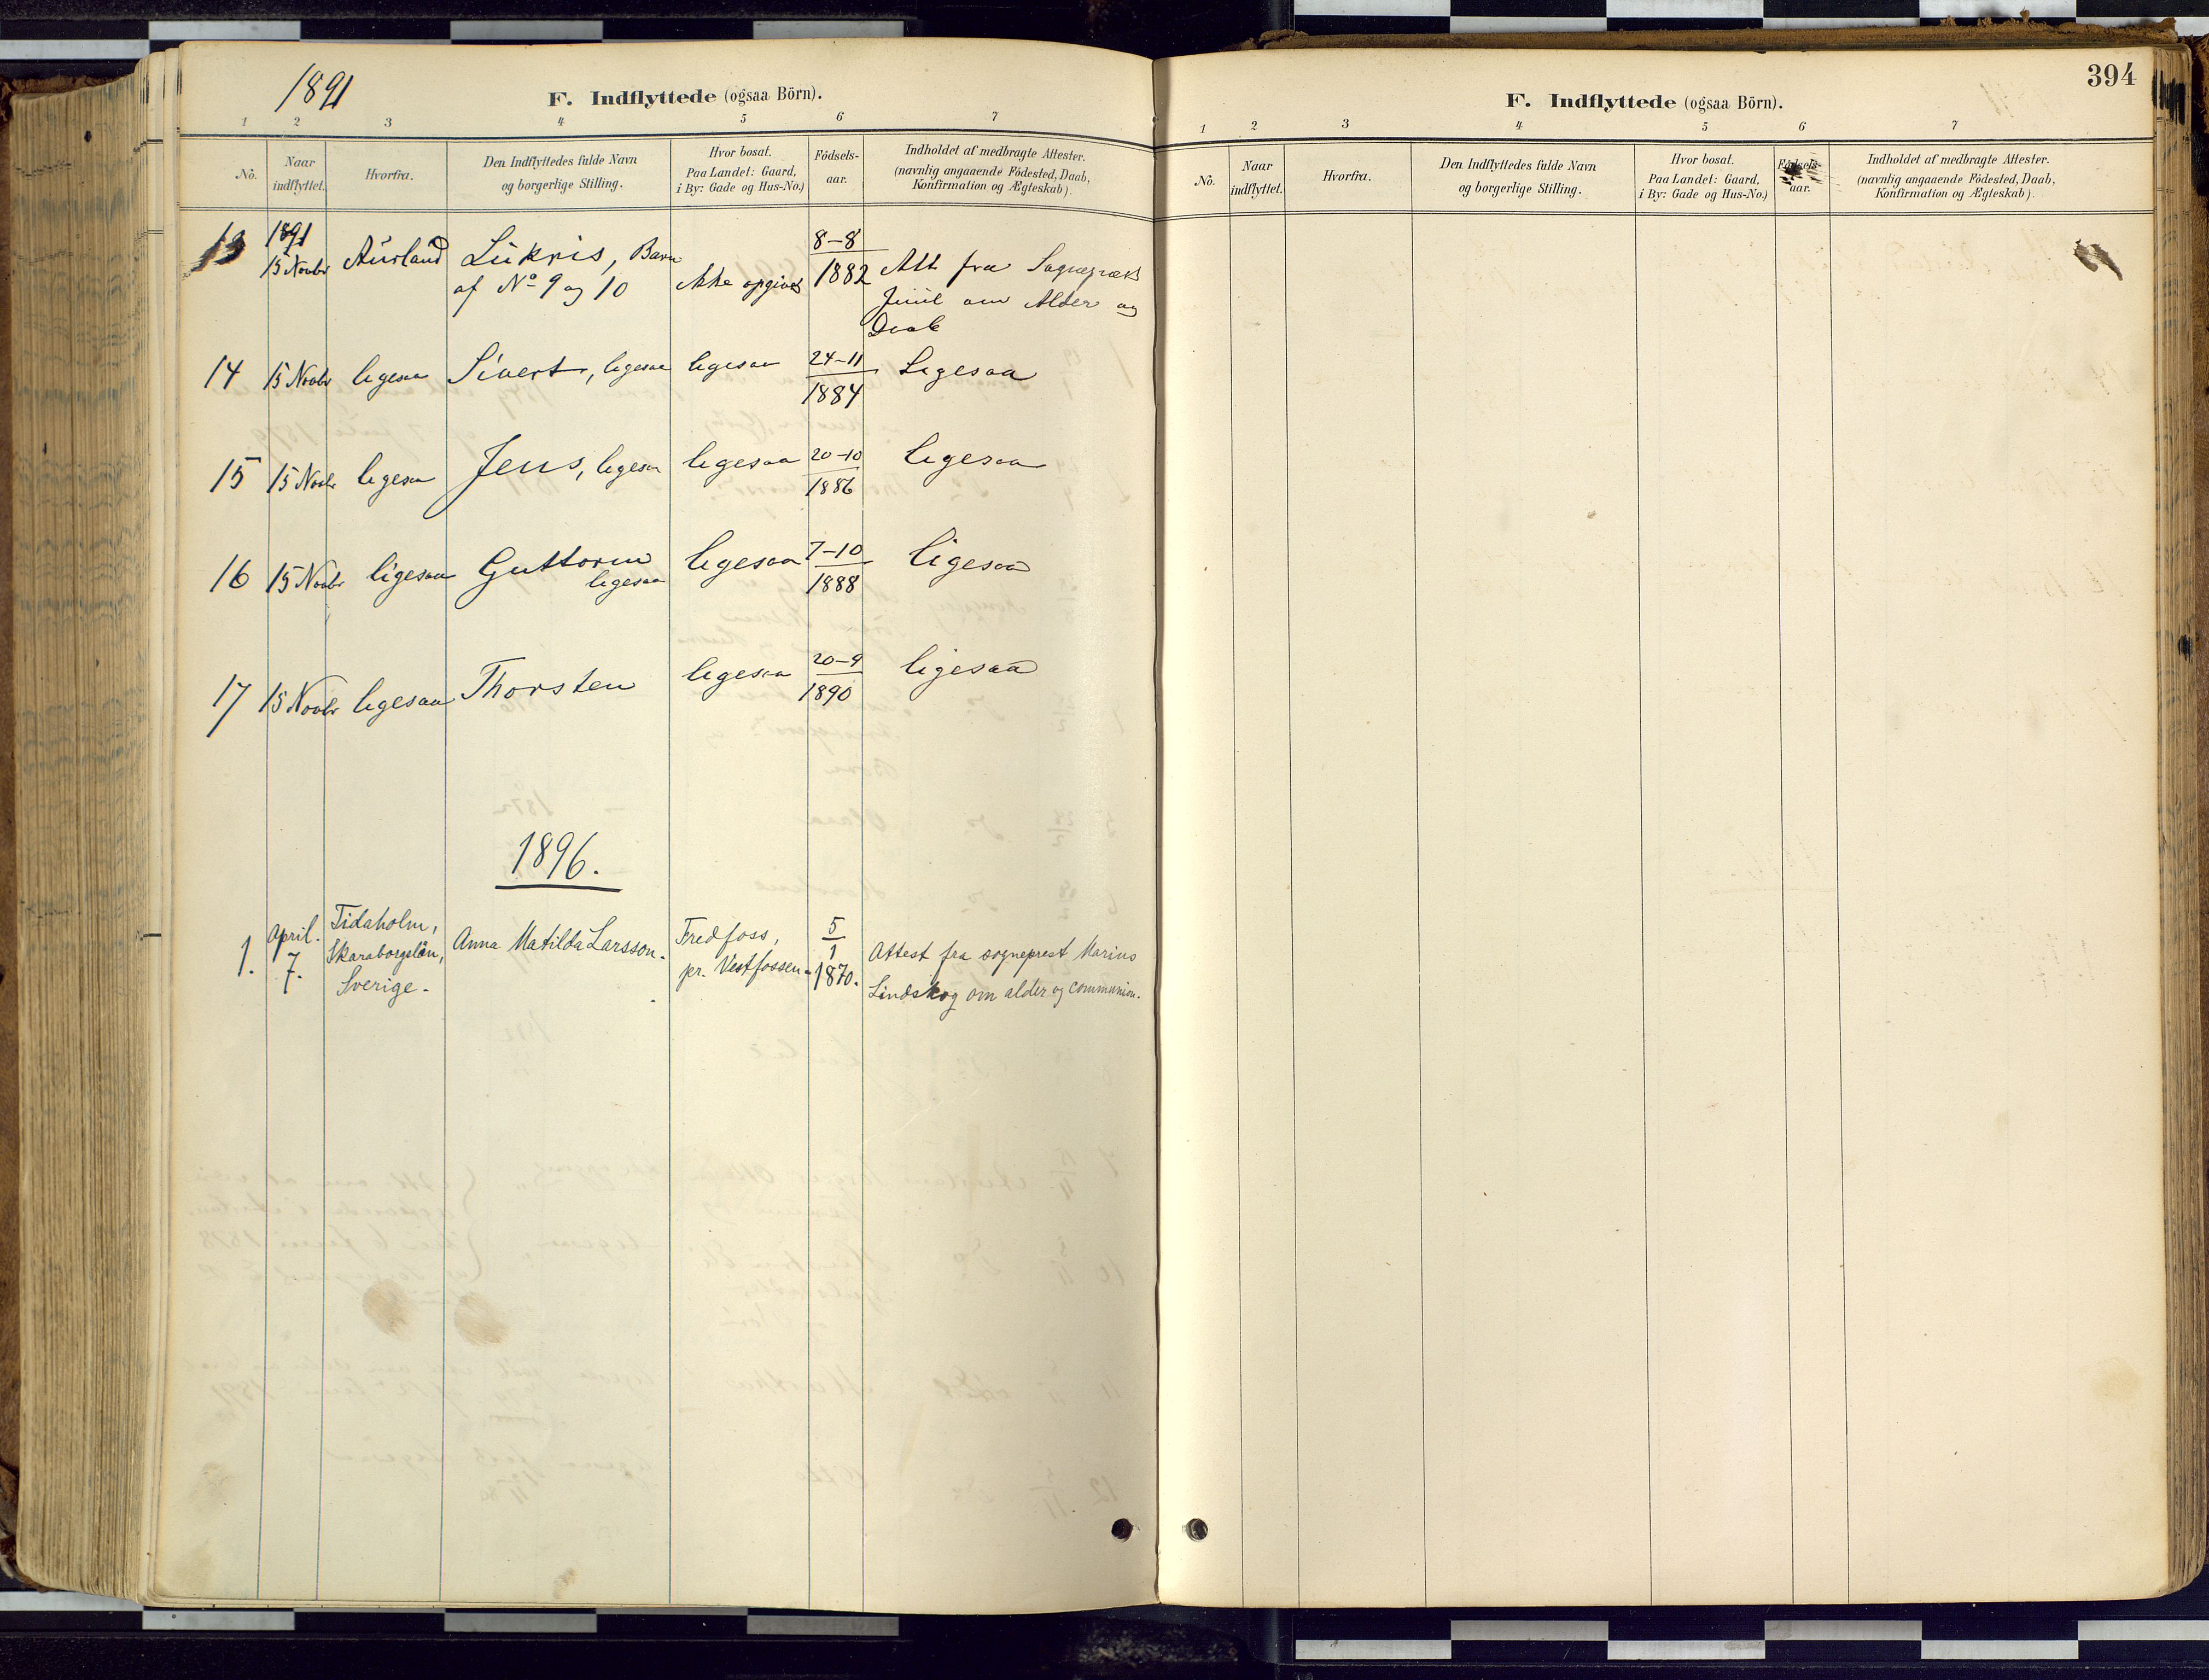 1891
F. Indflyttede (ogsaa Börn).
1 2 3 4 5 6 7
No. Naar indflyttet. Hvorfra. Den Indflyttedes fulde Navn og borgerlige Stilling. Hvor bosat. Paa Landet: Gaard, i By: Gade og Hus-No.) Födsels-aar. Indholdet af medbragte Attester. (navnlig angaaende Födested, Daab, Konfirmation og Ægteskab).
13 1891 15 Novbr Aurland Lukris, Barn af No 9 og 10 Ikke opgivet 8-8 1882 Att fra Sognepræst
Juul om Alder og
Daab
14 15 Novbr ligesaa Sivert, ligesaa ligesaa 24-11 1884 Ligesaa
15 15 Novbr ligesaa Jens, ligesaa ligesaa 20-10 1886 ligesaa
16 15 Novbr ligesaa Guttorm ligesaa ligesaa 7-10 1888 ligesaa
17 15 Novbr ligesaa Thorsten ligesaa 20-9 1890 ligesaa
1896.
1. April. 7. Tidaholm, Skaraborgslän, Sverige. Anna Matilda Larsson. Fredfoss, pr. Vestfossen 5/1 1870. Attest fra sogneprest Marius
Lindskog om alder og communion.
394
F. Indflyttede (ogsaa Börn).
1 2 3 4 5 6 7
No. Naar indflyttet. Hvorfra. Den Indflyttedes fulde Navn og borgerlige Stilling. Hvor bosat. Paa Landet: Gaard, i By: Gade og Hus-No.) Födsels-aar. Indholdet af medbragte Attester. (navnlig angaaende Födested, Daab, Konfirmation og Ægteskab).